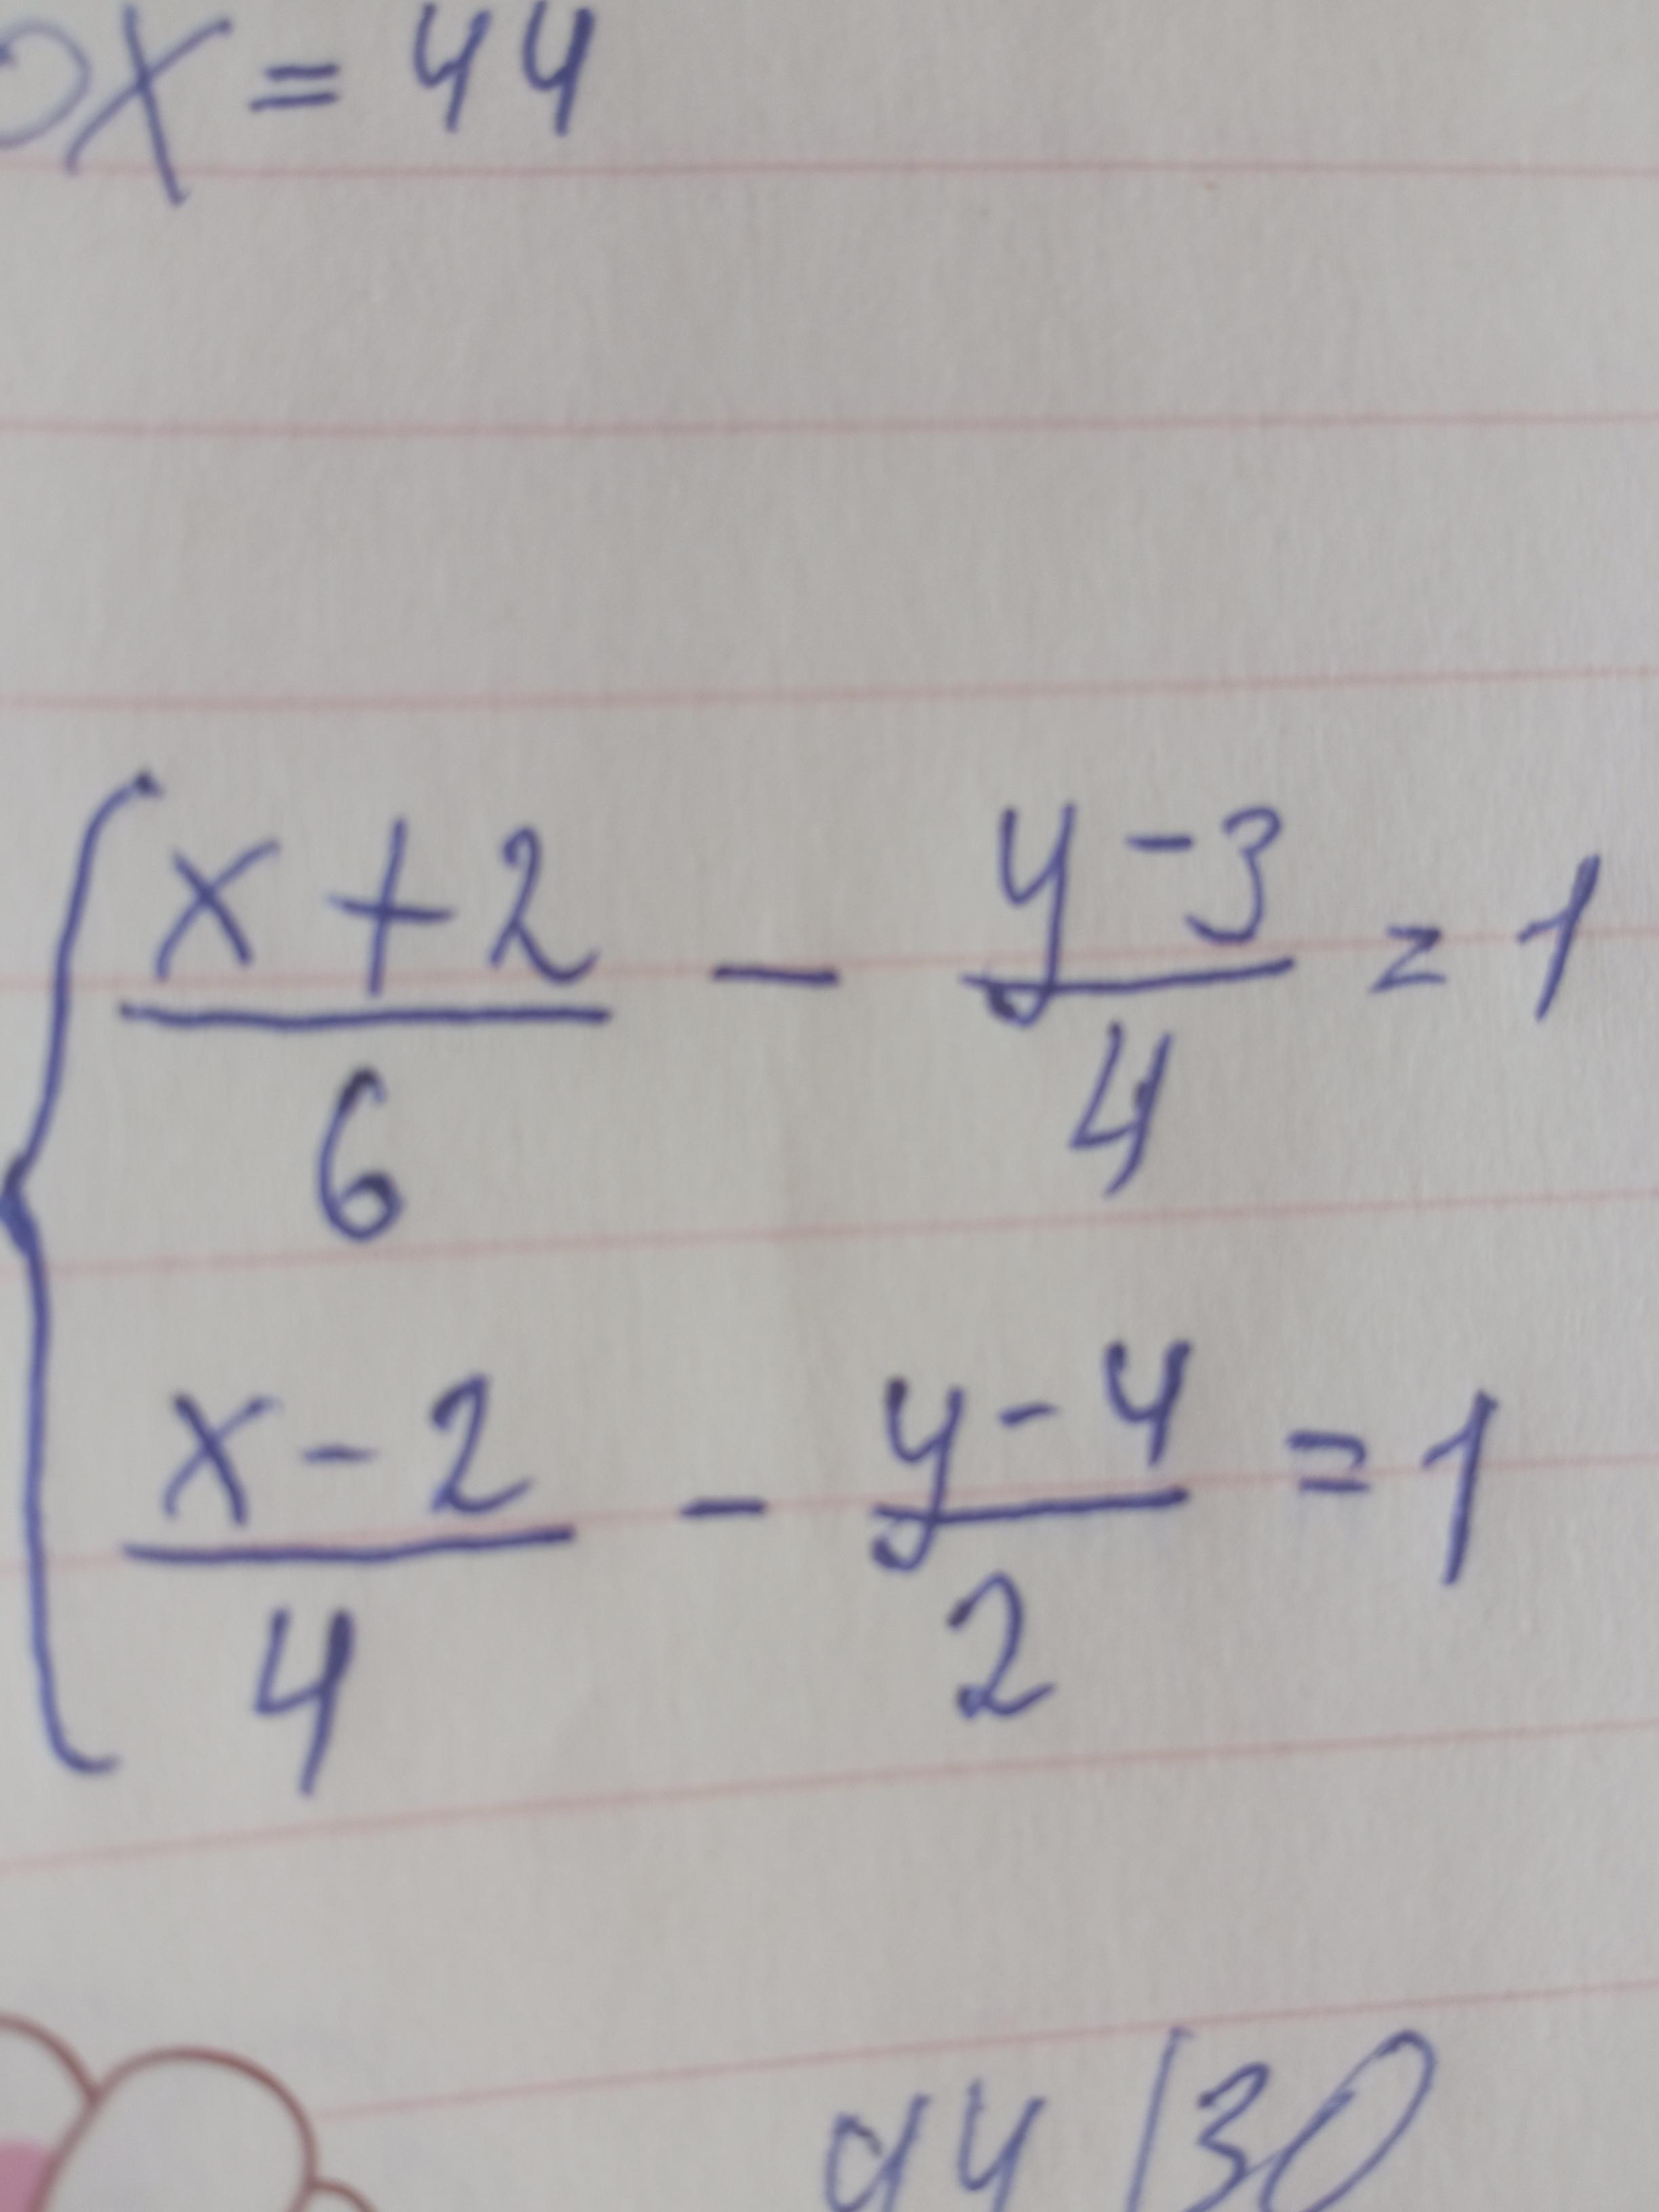 0x = 44
x + 2 / 6 - y - 3 / 4 = 1
x - 2 / 4 - y - 4 / 2 = 1
44 | 30